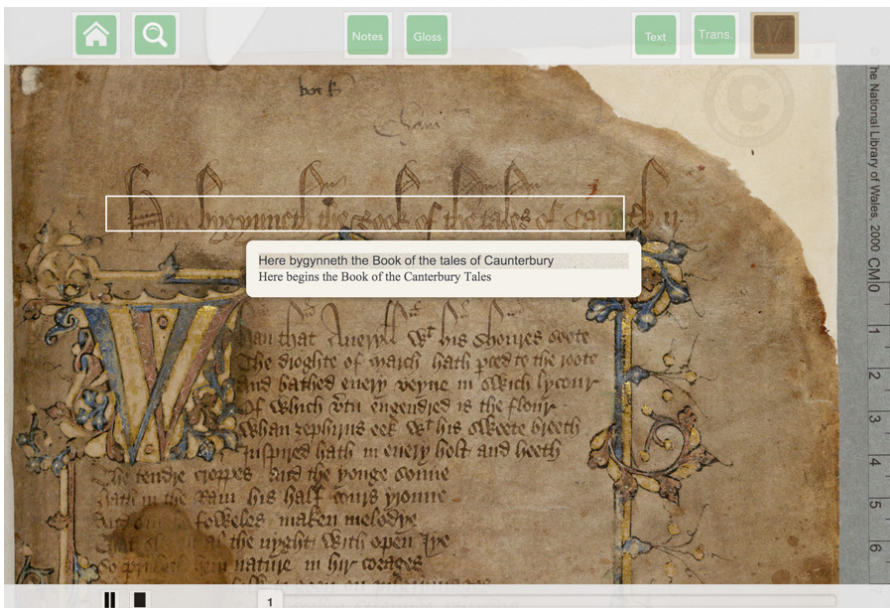 Notes Gloss Text Trans.
© The National Library of Wales, 2000 CM 0 1 2 3 4 5 6
Here bygynneth the Book of the tales of Caunterbury
Here bygynneth the Book of the tales of Caunterbury
Here begins the Book of the Canterbury Tales
Whan that Aueryll wt his shoures soote
The droghte of march hath pced to the roote
And bathed euery veyne in swich lycour
Of which vtu engendred is the flour
Whan zephirus eek wt his sweete breeth
Inspired hath in euery holt and heeth
The tendre croppes and the yonge sonne
Hath in the Ram his half cours yronne
foweles maken melodye
al the nyght with open Iye
So priketh hem nature in hir corages
1